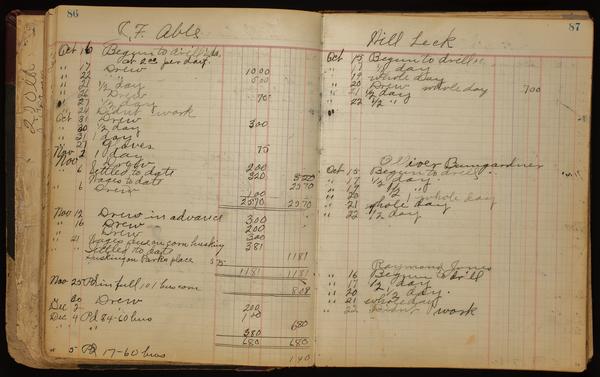 86
C F. Able
Oct 16 Begun to drill
per day
" 17 Drew 1000
" 22 " 500
" 21 1/2 day
" 26 Drew 70
" 27 1/2 day
" 29 Didnt work
Oct 31 Drew 300
" 30 1/2 day
" 31 1 day
" 27 Gloves 75
Nov 2 1 day
Nov Drew 200
" 6 Settled to date 320
Wages to date 2570
" 6 Drew 100
2570 2570
Nov 12 Drew in advance 300
" 16 Drew 200
" Drew 300
" 21 Wages due on corn husking 381
" Settled to date
husking on Parks place 1181
1181 1181
Nov 25 Pd in full 101 bus corn 808
" 30 Drew 200
Dec 2
Dec 4 Pd 84-60 bus 680
" " 380
680 680
" 5 Pd 17-60 bus 140
87
Will Leck
Oct 15 Begun to drill
" 17 1/2 day
" 19 whole day
" 20 Drew whole day 700
" 21 1/2 day
" 22 1/2 "
Olliver Bumgardner
Oct 15 Begun to drill
" 17 1/2 day
" 19 1/2 "
" 20 1 whole day
" 21 whole day
" 22 1/2 day
Raymond Jones
" 16 Begun to drill
" 17 1/2 day
" 20 1/2 day
" 21 whole day
" 22 Didn't work